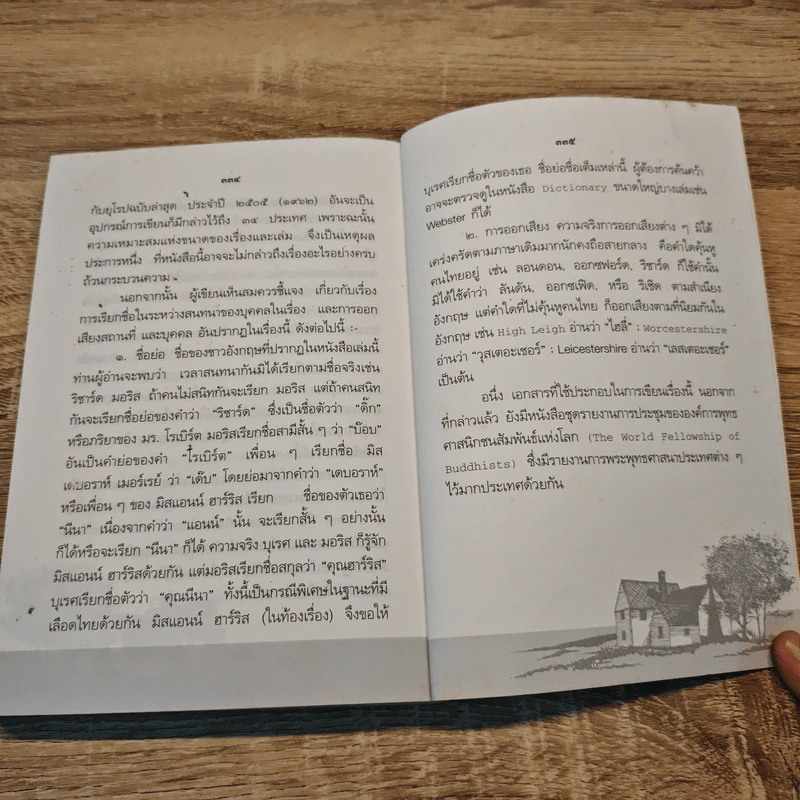 ๓๓๔
กับยุโรปฉบับล่าสุด ประจำปี ๒๕๐๕ (๑๙๖๒) อันจะเป็น
อุปกรณ์การเขียนก็มีกล่าวไว้ถึง ๓๔ ประเทศ เพราะฉะนั้น
ความเหมาะสมแห่งขนาดของเรื่องและเล่ม จึงเป็นเหตุผล
ประการหนึ่ง ที่หนังสือนี้อาจจะไม่กล่าวถึงเรื่องอะไรอย่างครบ
ถ้วนกระบวนความ
นอกจากนั้น ผู้เขียนเห็นสมควรชี้แจง เกี่ยวกับเรื่อง
การเรียกชื่อในระหว่างสนทนาของบุคคลในเรื่อง และการออก
เสียงสถานที่ และบุคคล อันปรากฏในเรื่องนี้ ดังต่อไปนี้ :-
๑. ชื่อย่อ ชื่อของชาวอังกฤษที่ปรากฏในหนังสือเล่มนี้
ท่านผู้อ่านจะพบว่า เวลาสนทนากันมิได้เรียกตามชื่อจริงเช่น
ริชาร์ด มอริส ถ้าคนไม่สนิทกันจะเรียก มอริส แต่ถ้าคนสนิท
กันจะเรียกชื่อย่อของคำว่า “ริชาร์ด” ซึ่งเป็นชื่อตัวว่า “ดิ๊ก”
หรือภริยาของ มร. โรเบิร์ต มอริสเรียกชื่อสามีสั้น ๆ ว่า “บ๊อบ”
อันเป็นคำย่อของคำ “โรเบิร์ต” เพื่อน ๆ เรียกชื่อ มิส
เดบอราห์ เมอร์เรย์ ว่า “เด๊บ” โดยย่อมาจากคำว่า “เดบอราห์”
หรือเพื่อน ๆ ของ มิสแอนน์ ฮาร์ริส เรียก ชื่อของตัวเธอว่า
“นีนา” เนื่องจากคำว่า “แอนน์” นั้น จะเรียกสั้น ๆ อย่างนั้น
ก็ได้หรือจะเรียก “นีนา” ก็ได้ ความจริง บุเรศ และ มอริส ก็รู้จัก
มิสแอนน์ ฮาร์ริสด้วยกัน แต่มอริสเรียกชื่อสกุลว่า “คุณฮาร์ริส”
บุเรศเรียกชื่อตัวว่า “คุณนีนา” ทั้งนี้เป็นกรณีพิเศษในฐานะที่มี
เลือดไทยด้วยกัน มิสแอนน์ ฮาร์ริส (ในท้องเรื่อง) จึงขอให้
๓๓๕
บุเรศเรียกชื่อตัวของเธอ ชื่อย่อชื่อเต็มเหล่านี้ ผู้ต้องการค้นคว้า
อาจจะตรวจดูในหนังสือ Dictionary ขนาดใหญ่บางเล่มเช่น
Webster ก็ได้
๒. การออกเสียง ความจริงการออกเสียงต่าง ๆ มิได้
เคร่งครัดตามภาษาเดิมมากนักคงถือสายกลาง คือคำใดคุ้นหู
คนไทยอยู่ เช่น ลอนดอน, ออกซฟอร์ด, ริชาร์ด ก็ใช้คำนั้น
มิได้ใช้คำว่า ลันดัน, ออกซเฟิด, หรือ ริเชิด ตามสำเนียง
อังกฤษ แต่คำใดที่ไม่คุ้นหูคนไทย ก็ออกเสียงตามที่นิยมกันใน
อังกฤษ เช่น High Leigh อ่านว่า “ไฮลี่” : Worcestershire
อ่านว่า “วุสเตอะเซอร์” : Leicestershire อ่านว่า “เลสเตอะเซอร์”
เป็นต้น
อนึ่ง เอกสารที่ใช้ประกอบในการเขียนเรื่องนี้ นอกจาก
ที่กล่าวแล้ว ยังมีหนังสือชุดรายงานการประชุมขององค์การพุทธ
ศาสนิกชนสัมพันธ์แห่งโลก (The World Fellowship of
Buddhists) ซึ่งมีรายงานการพระพุทธศาสนาประเทศต่าง ๆ
ไว้มากประเทศด้วยกัน